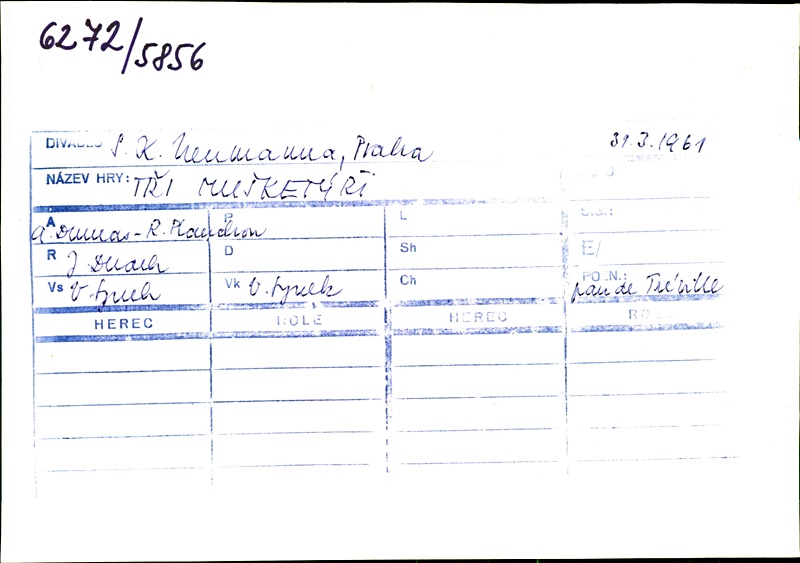 6272/5856
DIVADLO S. K. Neumanna, Praha 31.3.1961
NÁZEV HRY: TŘI MUŠKETÝŘI
A A. Dumas - R. Planchon P L
R J. Dudek D Sh E/
Vs V. Synek Vk V. Synek Ch POZN.: pan de Tréville
HEREC ROLE HEREC ROLE